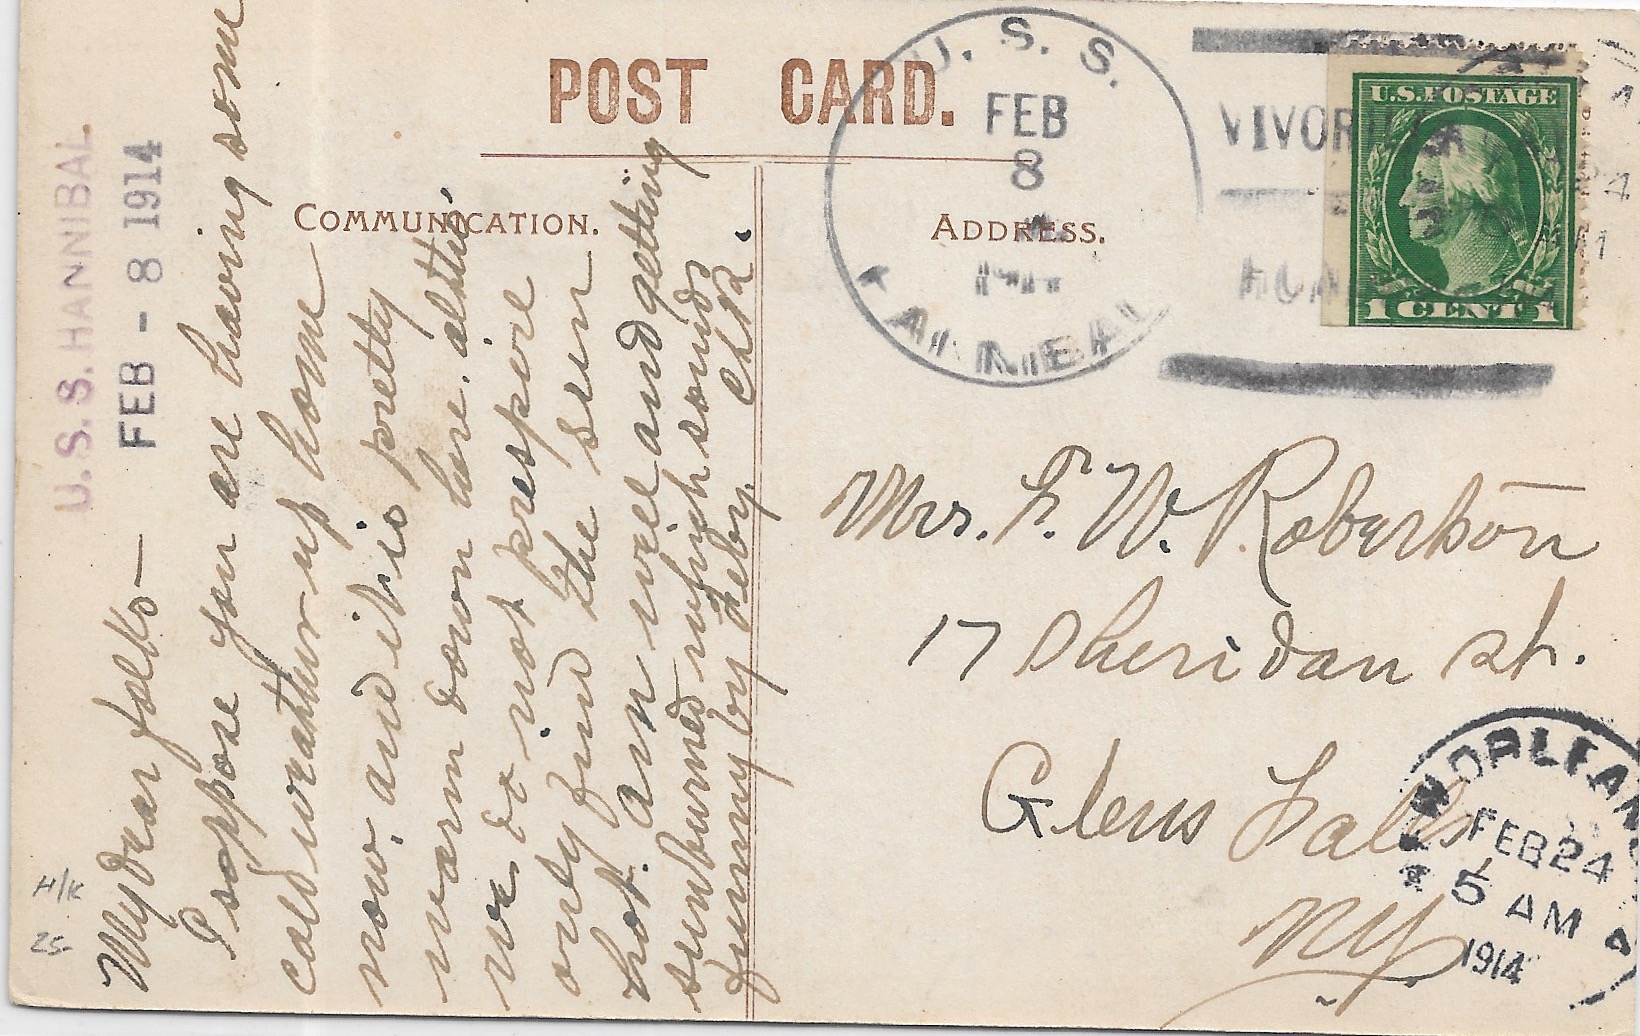 POST CARD.
COMMUNICATION.
ADDRESS.
U.S.S. HANNIBAL.
FEB - 8 1914
My dear folks —
I suppose you are having some
cold weather up home
now. and it is pretty
warm down here. altho'
we do not prespire
only find the sun
hot. Am well and getting
sunburned which sounds
funny by Feby. ChR.
U. S. S.
FEB
8
HANNIBAL
VIVORILLA
U.S. POSTAGE
1 CENT 1
Mrs. F. W. Robertson
17 Sheridan St.
Glens Falls
NY
NEW ORLEANS
FEB 24
5 AM
1914
H/K
25-